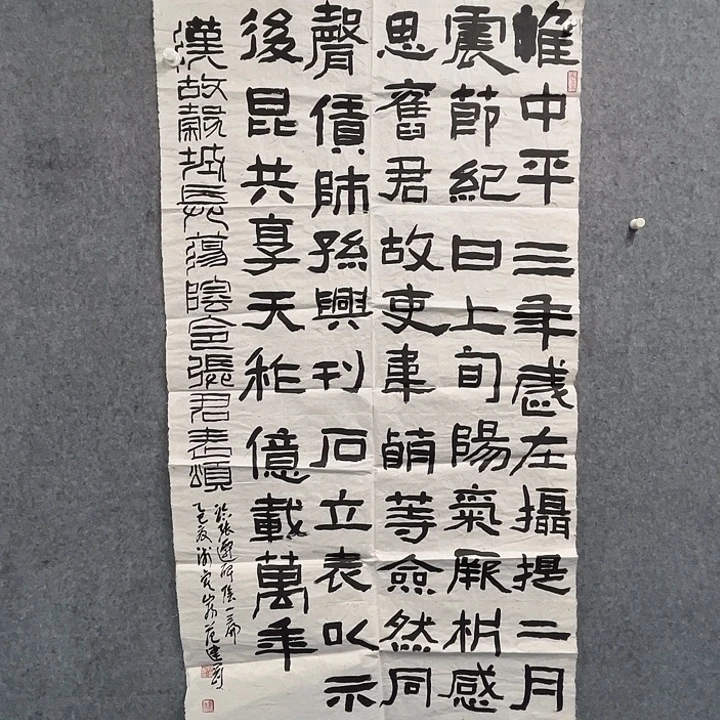 惟中平三年歲在攝提二月
震節紀日上旬陽氣厥析感
思舊君故吏韋萌等僉然同
聲賃師孫興刊石立表以示
後昆共享天祚億載萬年
漢故穀城長蕩陰令張君表頌
張遷碑陰
乙巳夏范建